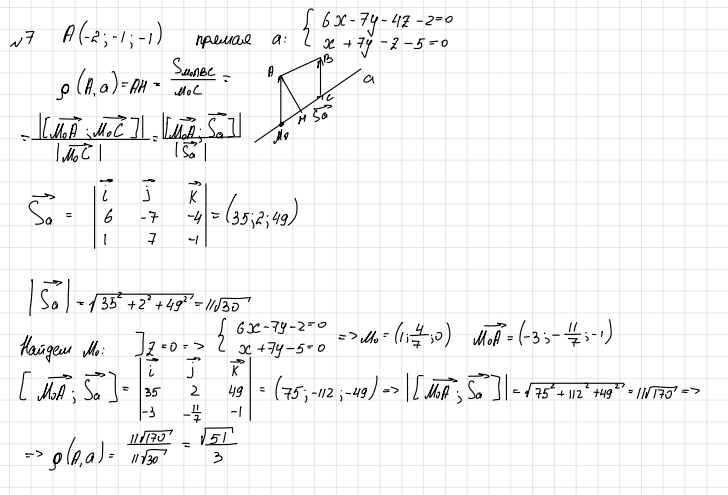 №7 A(-2;-1;-1) прямая a: { 6x-7y-4z-2=0
x+7y-z-5=0
ρ(A,a)=AH= S_M₀ABC / M₀C =
A B a
M₀ H C S⃗a
= |[M₀A⃗; M₀C⃗]| / |M₀C⃗| = |[M₀A⃗; S⃗a]| / |S⃗a|
S⃗a = | i⃗ j⃗ k⃗ |
| 6 -7 -4 | = (35; 2; 49)
| 1 7 -1 |
|S⃗a| = √(35²+2²+49²) = 11√30
Найдем M₀: ] z=0 => { 6x-7y-2=0
x+7y-5=0 => M₀=(1; 4/7; 0) M₀A⃗=(-3; -11/7; -1)
[M₀A⃗; S⃗a] = | i⃗ j⃗ k⃗ |
| 35 2 49 | = (75; -112; -49) => |[M₀A⃗; S⃗a]| = √(75²+112²+49²) = 11√170 =>
| -3 -11/7 -1 |
=> ρ(A,a) = 11√170 / 11√30 = √51 / 3